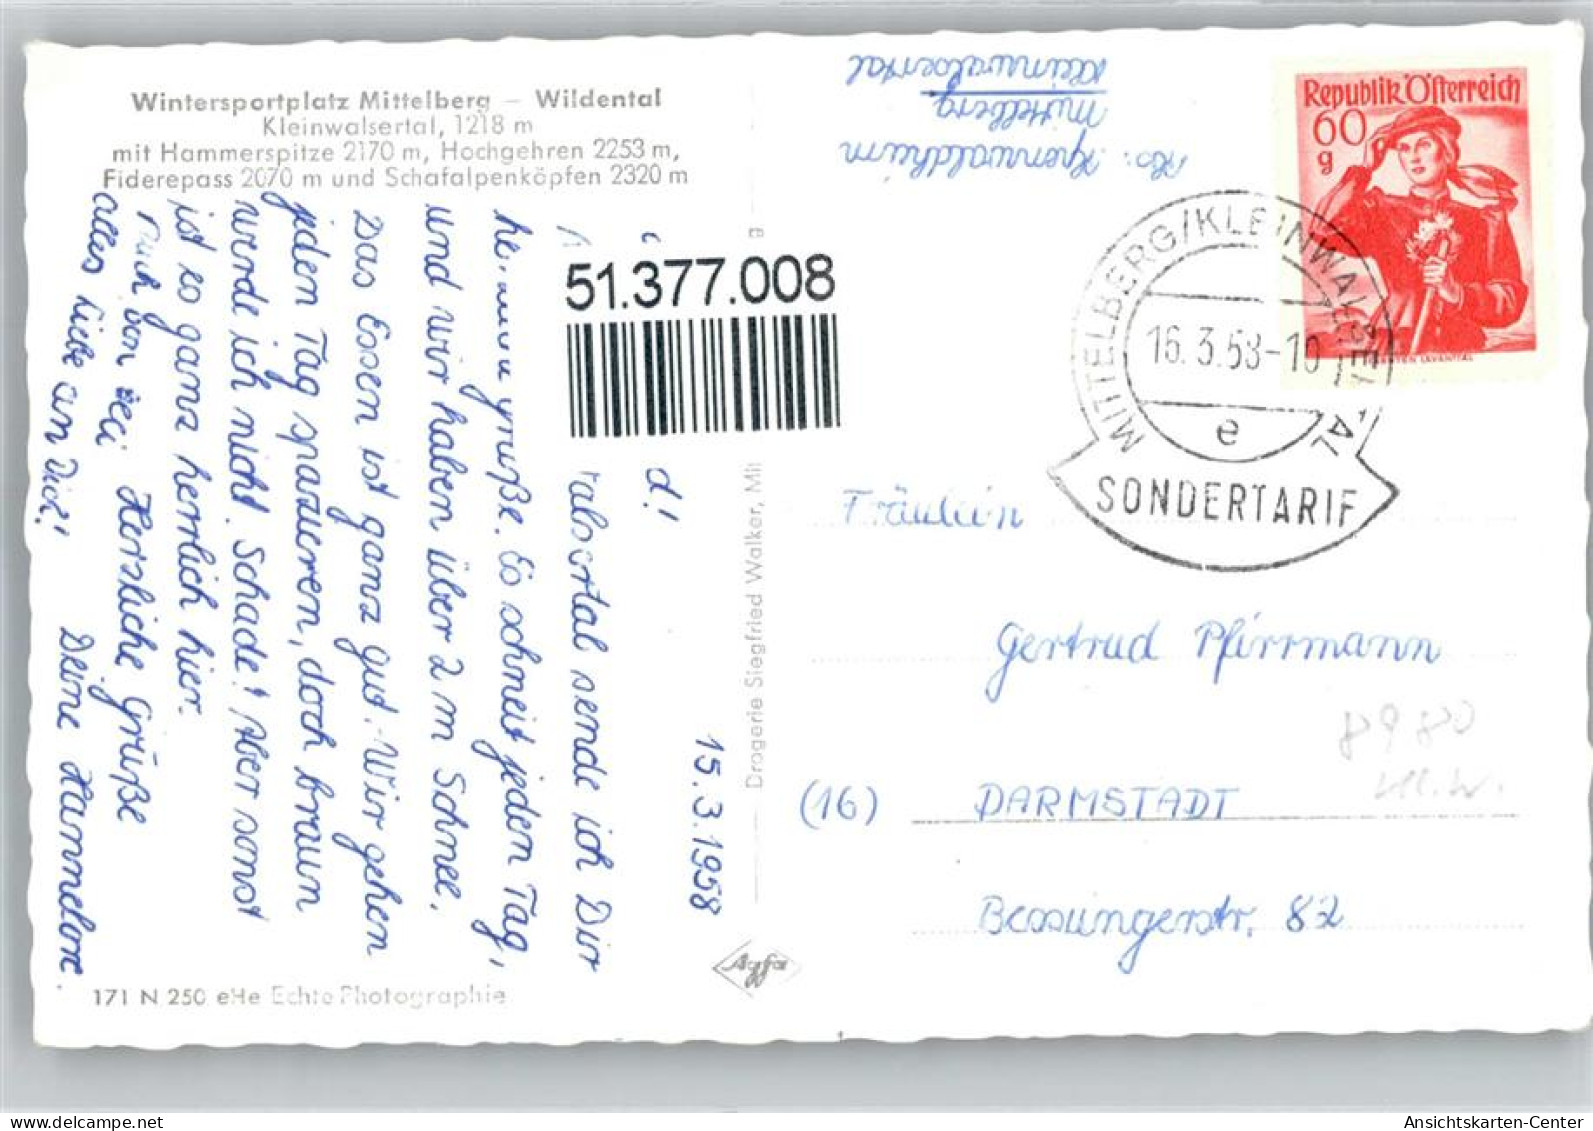 Wintersportplatz Mittelberg – Wildental
Kleinwalsertal, 1218 m
mit Hammerspitze 2170 m, Hochgehren 2253 m,
Fiderepass 2070 m und Schafalpenköpfen 2320 m
Abs: 
Mittelberg
Kleinwalsertal
Republik Österreich
60
g
MITTELBERG/KLEINWALSERTAL
16.3.58-10
e
SONDERTARIF
51.377.008
15.3.1958
d!
sende ich Dir
Grüße. Es schneit jeden Tag,
und wir haben über 2 m Schnee.
Das Essen ist ganz gut. Wir gehen
jeden Tag spazieren, doch braun
werde ich nicht. Schade! Aber sonst
ist es ganz herrlich hier.
Auch von Zeci Herzliche Grüße
alles Liebe an Dich! Deine Hannelore.
Drogerie Siegfried Walker, Mit
Agfa
Fräulein
Gertrud Pfirrmann
(16) DARMSTADT
Bessungerstr. 82
171 N 250 eHe Echte Photographie
Ansichtskarten-Center